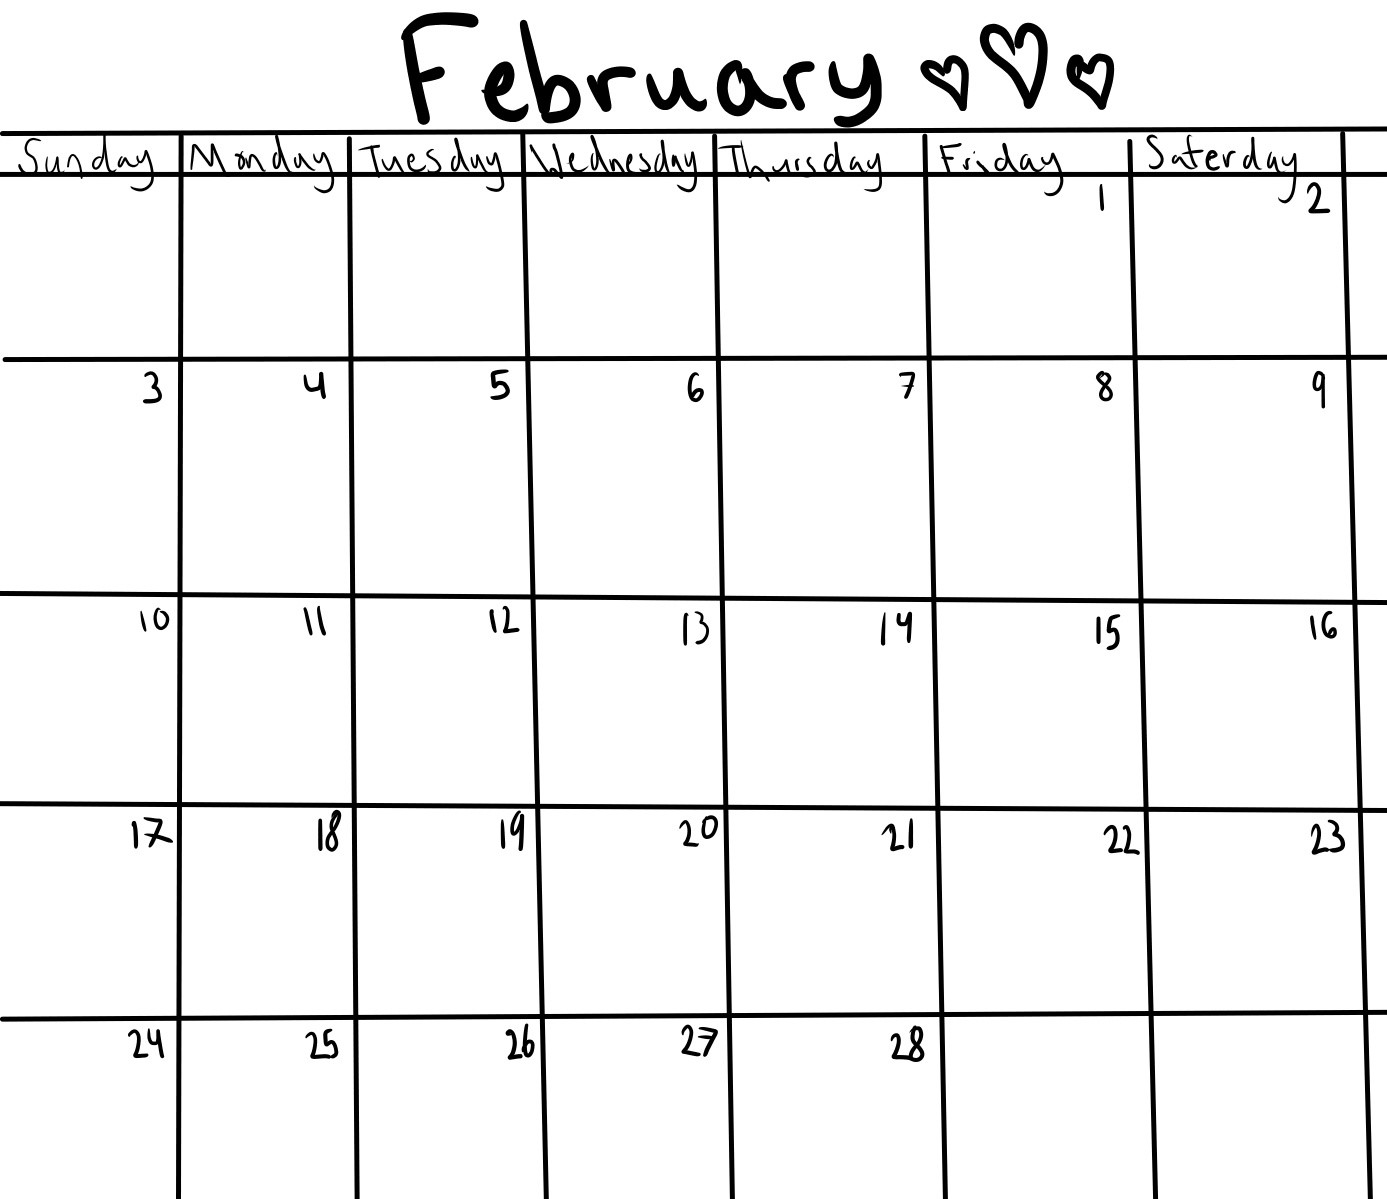 February
Sunday Monday Tuesday Wednesday Thursday Friday Saterday
1 2
3 4 5 6 7 8 9
10 11 12 13 14 15 16
17 18 19 20 21 22 23
24 25 26 27 28